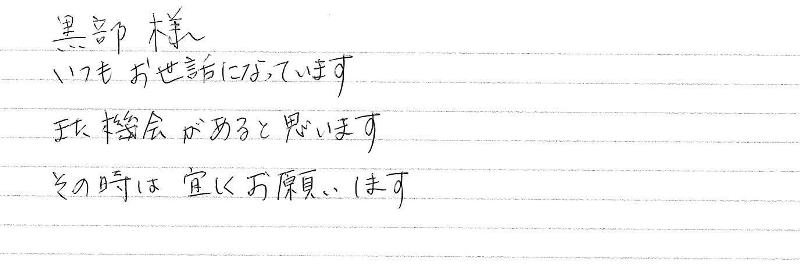 黒部 様
いつも お世話になっています
また 機会 があると 思います
その時は 宜しく お願いします